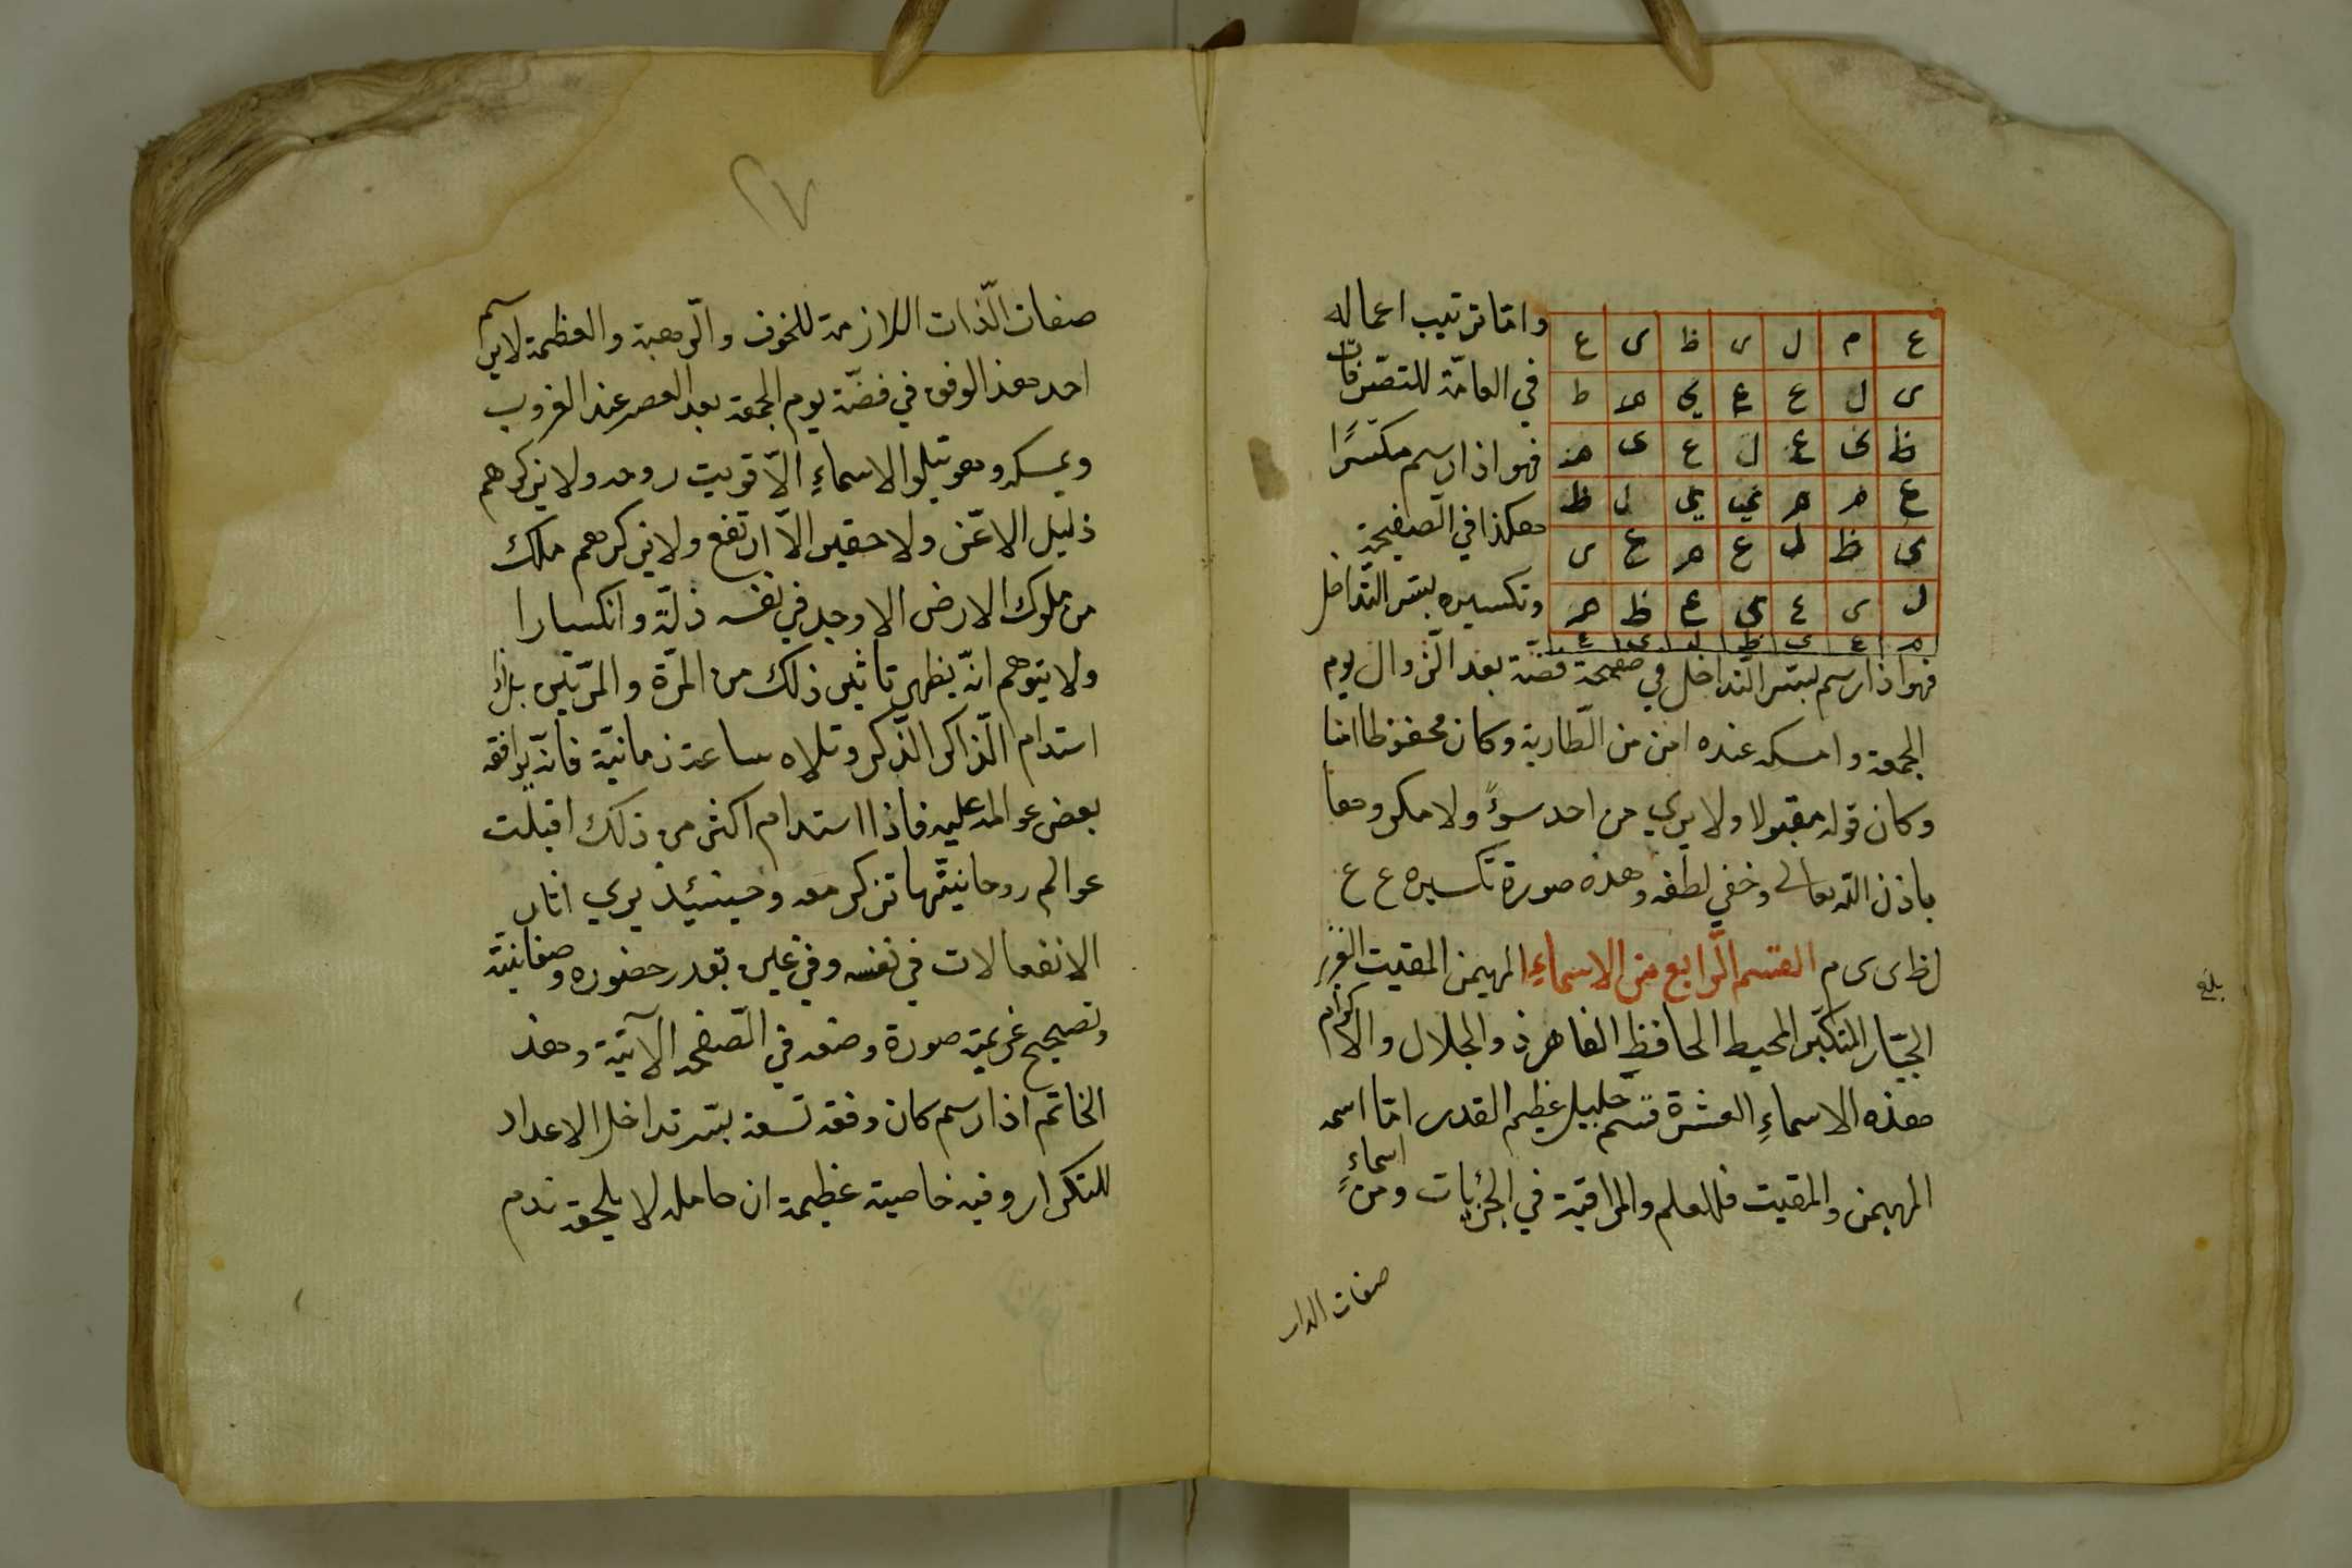 واما ترتيب اعماله
في العامّة للتصّرفات
فهو اذا رسم مكسّرًا
هكذا في الصفيحة
وتكسيره بسّر التّداخل
ع م ل ى ظ ى ع
ى ل ع ع ي م ط
ظ ى ع ل ع ى م
ع م م ي ي ل ظ
ى ظ ل ع م ع ى
ل ى ع ى ع ظ م
م ع ى ظ ل ى ع
فهو اذا رسم بسّر التّداخل في صفيحة فضّة بعد الزّوال يوم
الجمعة وامسكه عنده امن من الطّارية وكان محفوظا امنا
وكان قوله مقبولا ولا يري من احد سوءً ولا مكروها
باذن الله تعالى وخفي لطفه وهذه صورة تكسيره ع ع
ل ظ ى ى م القسم الرّابع من الاسماءِ المهيمن المقيت العزيز
الجبّار المتكبّر المحيط الحافظ القاهر ذو الجلال والاكرام
هذه الاسماءِ العشرة قسم جليل عظيم القدر امّا اسمه
المهيمن والمقيت فللعلم والمراقبة في الجزئيات ومن اسماءِ
صفات الذات
بلغ
٢٧
صفات الّذات اللازمة للخوف والرّهبة والعظمة لا يرسم
احد هذا الوفق في فضّة يوم الجمعة بعد العصر عند الغروب
ويمسكه وهو يتلوا الاسماءِ الّا قويت روحه ولا يذكرهم
ذليل الا عّز ولا حقير الّا ارتفع ولا يذكرهم ملك
من ملوك الارض الا وجد في نفسه ذلّة وانكسارا
ولا يتوهم انّه يظهر تاثير ذلك من المرّة والمرّتين بل اذا
استدام الّذاكر الّذكر وتلاه ساعة زمانيّة فانّه يرافقه
بعض عوالمه عليه فاذا استدام اكثر من ذلك اقبلت
عوالم روحانيتّها تذكر معه وحينئيذ يري اثار
الانفعالات في نفسه وفي غيره بقدر حضوره وصفانيته
وتصحيح عزيمته صورة وضعه في الّصفحه الآتية وهذ
الخاتم اذا رسم كان وفقه تسعة بسّر تداخل الاعداد
للتكرار وفيه خاصية عظيمة ان حامله لا يلحقه ندم